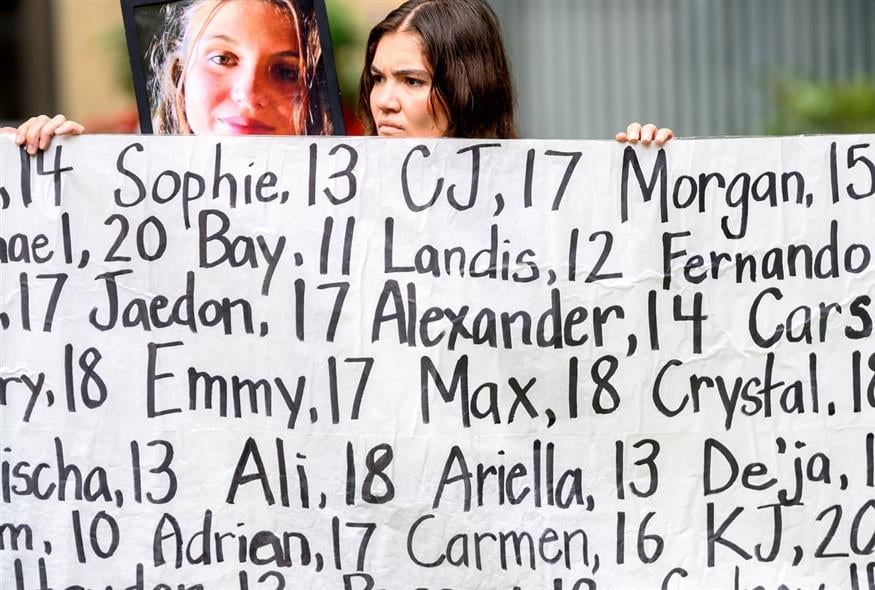 ,14 Sophie, 13 CJ, 17 Morgan, 15
ael, 20 Bay, 11 Landis, 12 Fernando
,17 Jaedon, 17 Alexander, 14 Cars
ry, 18 Emmy, 17 Max, 18 Crystal, 18
ischa, 13 Ali, 18 Ariella, 13 De'ja, 1
m, 10 Adrian, 17 Carmen, 16 KJ, 20